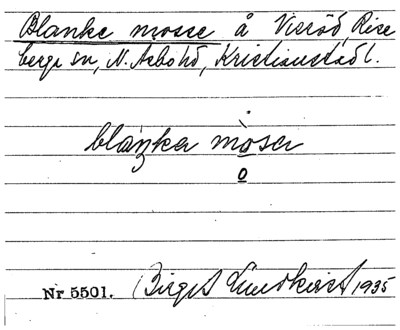 Blanke mosse å Vieröd, Rise
berga sn, N. Åsbo hd, Kristianstad l.
blanka mosa
o
Nr 5501. Birgit Lundkvist 1935